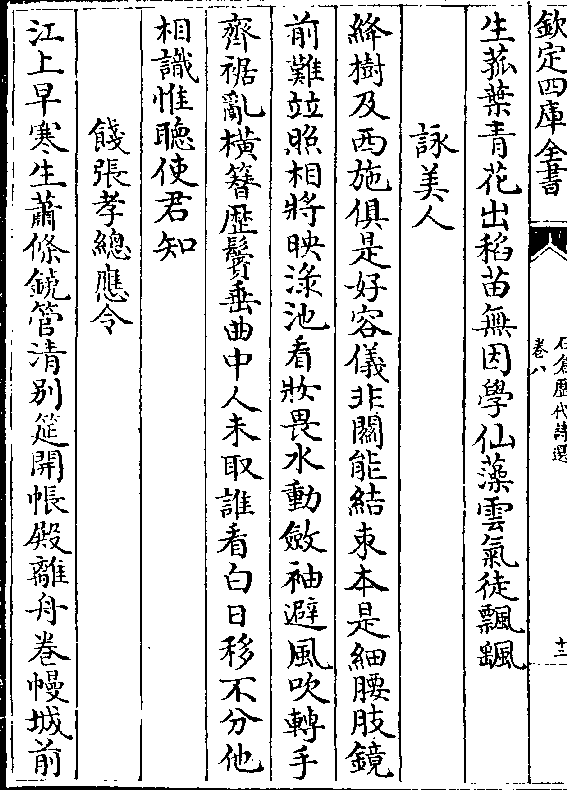 欽定四庫全書
石倉歷代詩選
卷八
十三
生菰葉青花出稻苗無因學仙藻雲氣徒飄颻
詠美人
絳樹及西施俱是好容儀非關能結束本是細腰肢鏡
前難竝照相將映淥池看妝畏水動斂袖避風吹轉手
齊裾亂橫簪歷鬢垂曲中人未取誰看白日移不分他
相識惟聽使君知
餞張孝總應令
江上早寒生蕭條鐃管清別筵開帳殿離舟卷幔城前